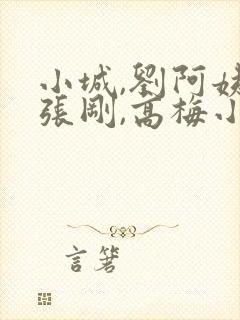 小城,劉阿姨
張剛,高梅小
言箸